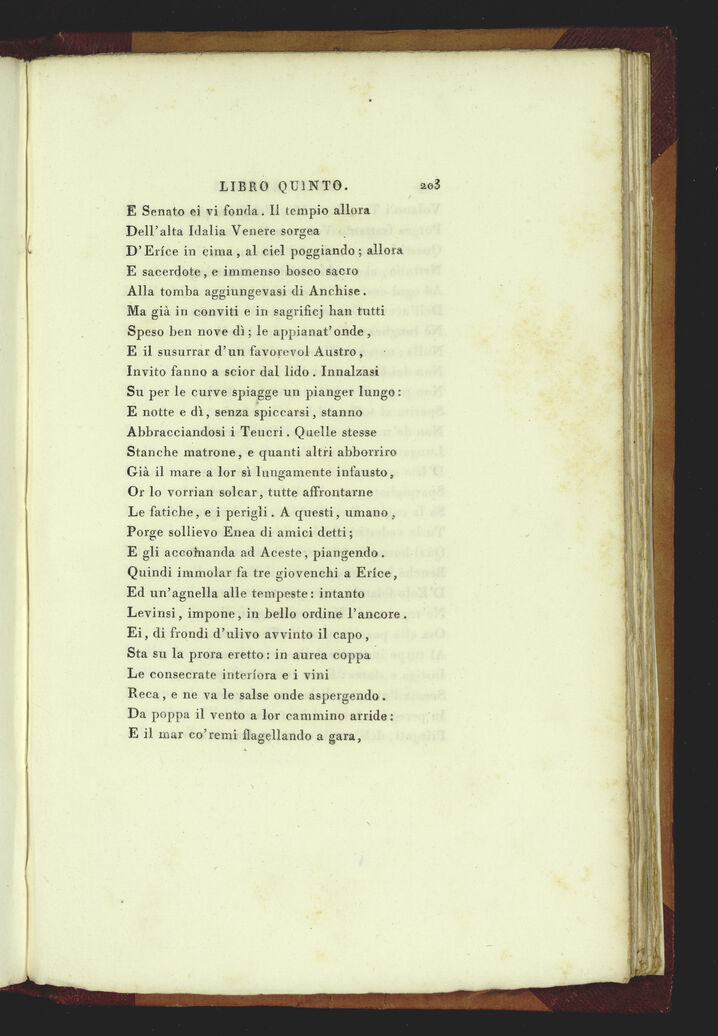 LIBRO QUINTO. 203
E Senato ei vi fonda. Il tempio allora
Dell'alta Idalia Venere sorgea
D'Eríce in cima, al ciel poggiando; allora
E sacerdote, e immenso bosco sacro
Alla tomba aggiungevasi di Anchise.
Ma già in conviti e in sagrificj han tutti
Speso ben nove dì; le appianat'onde,
E il susurrar d'un favorevol Austro,
Invito fanno a scior dal lido. Innalzasi
Su per le curve spiagge un pianger lungo:
E notte e dì, senza spiccarsi, stanno
Abbracciandosi i Teucri. Quelle stesse
Stanche matrone, e quanti altri abborriro
Già il mare a lor sì lungamente infausto,
Or lo vorrian solcar, tutte affrontarne
Le fatiche, e i perigli. A questi, umano,
Porge sollievo Enea di amici detti;
E gli accomanda ad Aceste, piangendo.
Quindi immolar fa tre giovenchi a Eríce,
Ed un'agnella alle tempeste: intanto
Levinsi, impone, in bello ordine l'ancore.
Ei, di frondi d'ulivo avvinto il capo,
Sta su la prora eretto: in aurea coppa
Le consecrate interíora e i vini
Reca, e ne va le salse onde aspergendo.
Da poppa il vento a lor cammino arride:
E il mar co'remi flagellando a gara,